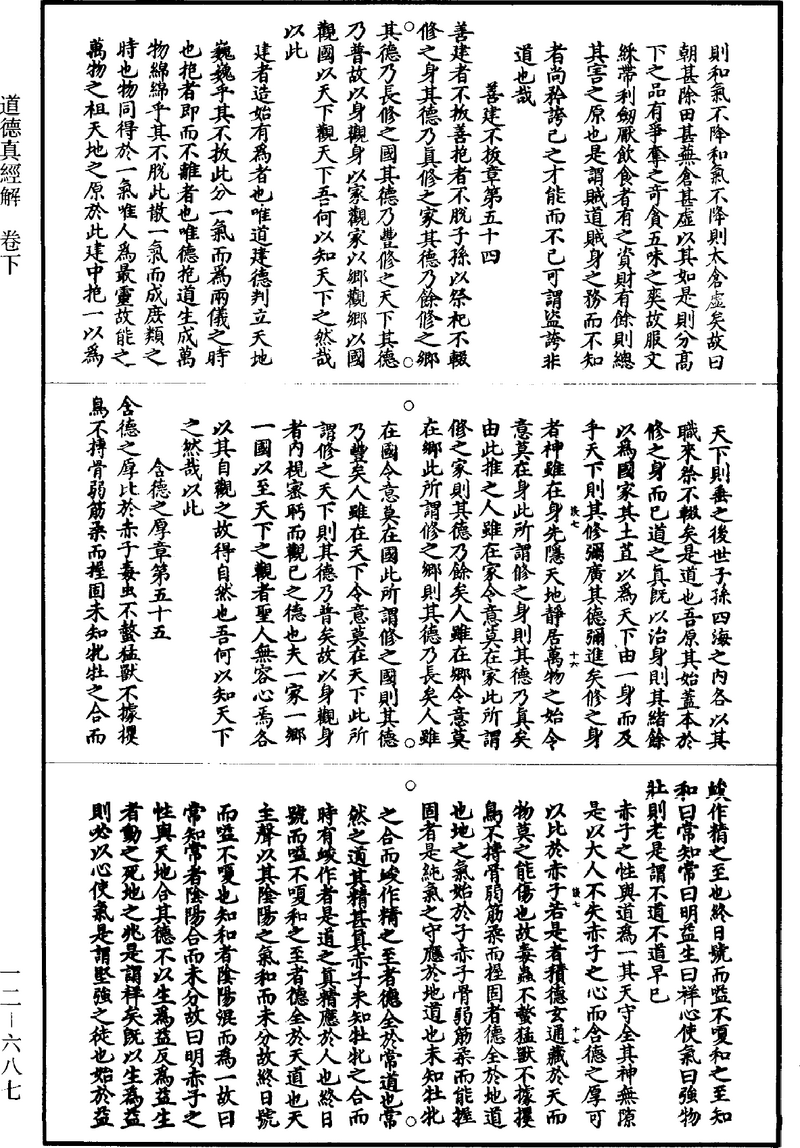 道德真經解　卷下
一二—六八七
則和氣不降和氣不降則太倉虛矣故曰
朝甚除田甚蕪倉甚虛以其如是則分高
下之品有爭奪之奇貪五味之爽故服文
綵帶利劒厭飲食者有之資財有餘則總
其害之原也是謂賊道賊身之務而不知
者尚矜誇已之才能而不已可謂盜誇非
道也哉
善建不拔章第五十四
善建者不拔善抱者不脫子孫以祭祀不輟
修之身其德乃真修之家其德乃餘修之鄉
其德乃長修之國其德乃豐修之天下其德
乃普故以身觀身以家觀家以鄉觀鄉以國
觀國以天下觀天下吾何以知天下之然哉
以此
建者造始有為者也唯道建德判立天地
巍巍乎其不拔此分一氣而為兩儀之時
也抱者即而不離者也唯德抱道生成萬
物綿綿乎其不脫此散一氣而成庶類之
時也物同得於一氣唯人為最靈故能之
萬物之祖天地之原於此建中抱一以為
天下則垂之後世子孫四海之內各以其
職來祭不輟矣是道也吾原其始蓋本於
修之身而已道之真既以治身則其緒餘
以為國家其土苴以為天下由一身而及
乎天下則其修彌廣其德彌進矣修之身
者神雖在身先隱天地靜居萬物之始令
意莫在身此所謂修之身則其德乃真矣
由此推之人雖在家令意莫在家此所謂
修之家則其德乃餘矣人雖在鄉令意莫
在鄉此所謂修之鄉則其德乃長矣人雖
在國令意莫在國此所謂修之國則其德
乃豐矣人雖在天下令意莫在天下此所
謂修之天下則其德乃普矣故以身觀身
者內視密眄而觀已之德也夫一家一鄉
一國以至天下之觀者聖人無容心焉各
以其自觀之故得自然也吾何以知天下
之然哉以此
含德之厚章第五十五
含德之厚比於赤子毒虫不螫猛獸不據攫
鳥不搏骨弱筋柔而握固未知牝牡之合而
峻作精之至也終日號而嗌不嗄和之至知
和曰常知常曰明益生曰祥心使氣曰強物
壯則老是謂不道不道早已
赤子之性與道為一其天守全其神無隙
是以大人不失赤子之心而含德之厚可
以比於赤子若是者積德玄通藏於天而
物莫之能傷也故毒蟲不螫猛獸不據攫
鳥不搏骨弱筋柔而握固者德全於地道
也地之氣始於子赤子骨弱筋柔而能握
固者是純氣之守應於地道也未知牡牝
之合而峻作精之至者德全於常道也常
然之道其精甚真赤子未知牡牝之合而
時有峻作者是道之真精應於人也終日
號而嗌不嗄和之至者德全於天道也天
主聲以其陰陽之氣和而未分故終日號
而嗌不嗄也知和者陰陽混而為一故曰
常知常者陰陽合而未分故曰明赤子之
性與天地合其德不以生為益反為益生
者動之死地之兆是謂祥矣既以生為益
則必以心使氣是謂堅強之徒也始於益